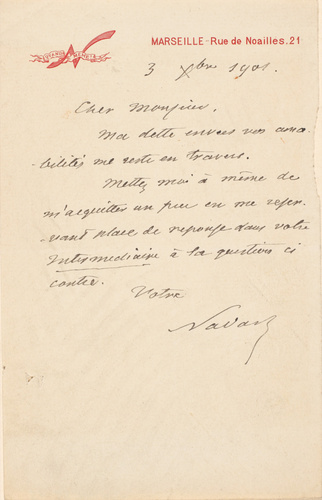 MARSEILLE - Rue de Noailles. 21
3 Xbre 1901.
Cher Monsieur.
Ma dette envers vos ama
bilités me reste en travers.
Mettez moi à même de
m'acquitter un peu en me reser
vant place de reponse dans votre
Intermediaire à la question ci
contre.
Votre
Nadar